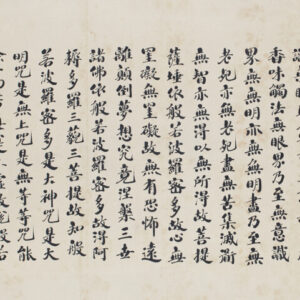 香味觸法無眼界乃至無意識
界無無明亦無無明盡乃至無
老死亦無老死盡無苦集滅道
無智亦無得以無所得故菩提
薩埵依般若波羅蜜多故心無
罣礙無罣礙故無有恐怖遠
離顛倒夢想究竟涅槃三世
諸佛依般若波羅蜜多故得阿
耨多羅三藐三菩提故知般
若波羅蜜多是大神咒是大
明咒是無上咒是無等等咒能